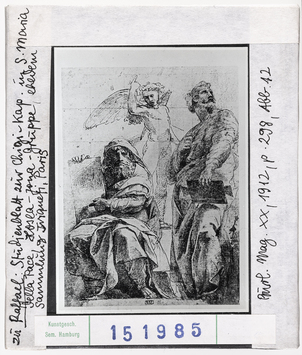 zu Raffael: Studienblatt zur Chigi-Kap. in S. Maria
della Pace: Hosea-Jona-Gruppe, ehedem
Sammlung Paris
Burl. Mag. XX, 1912, p. 298, Abb. 12
Kunstgesch.
Sem. Hamburg
151985